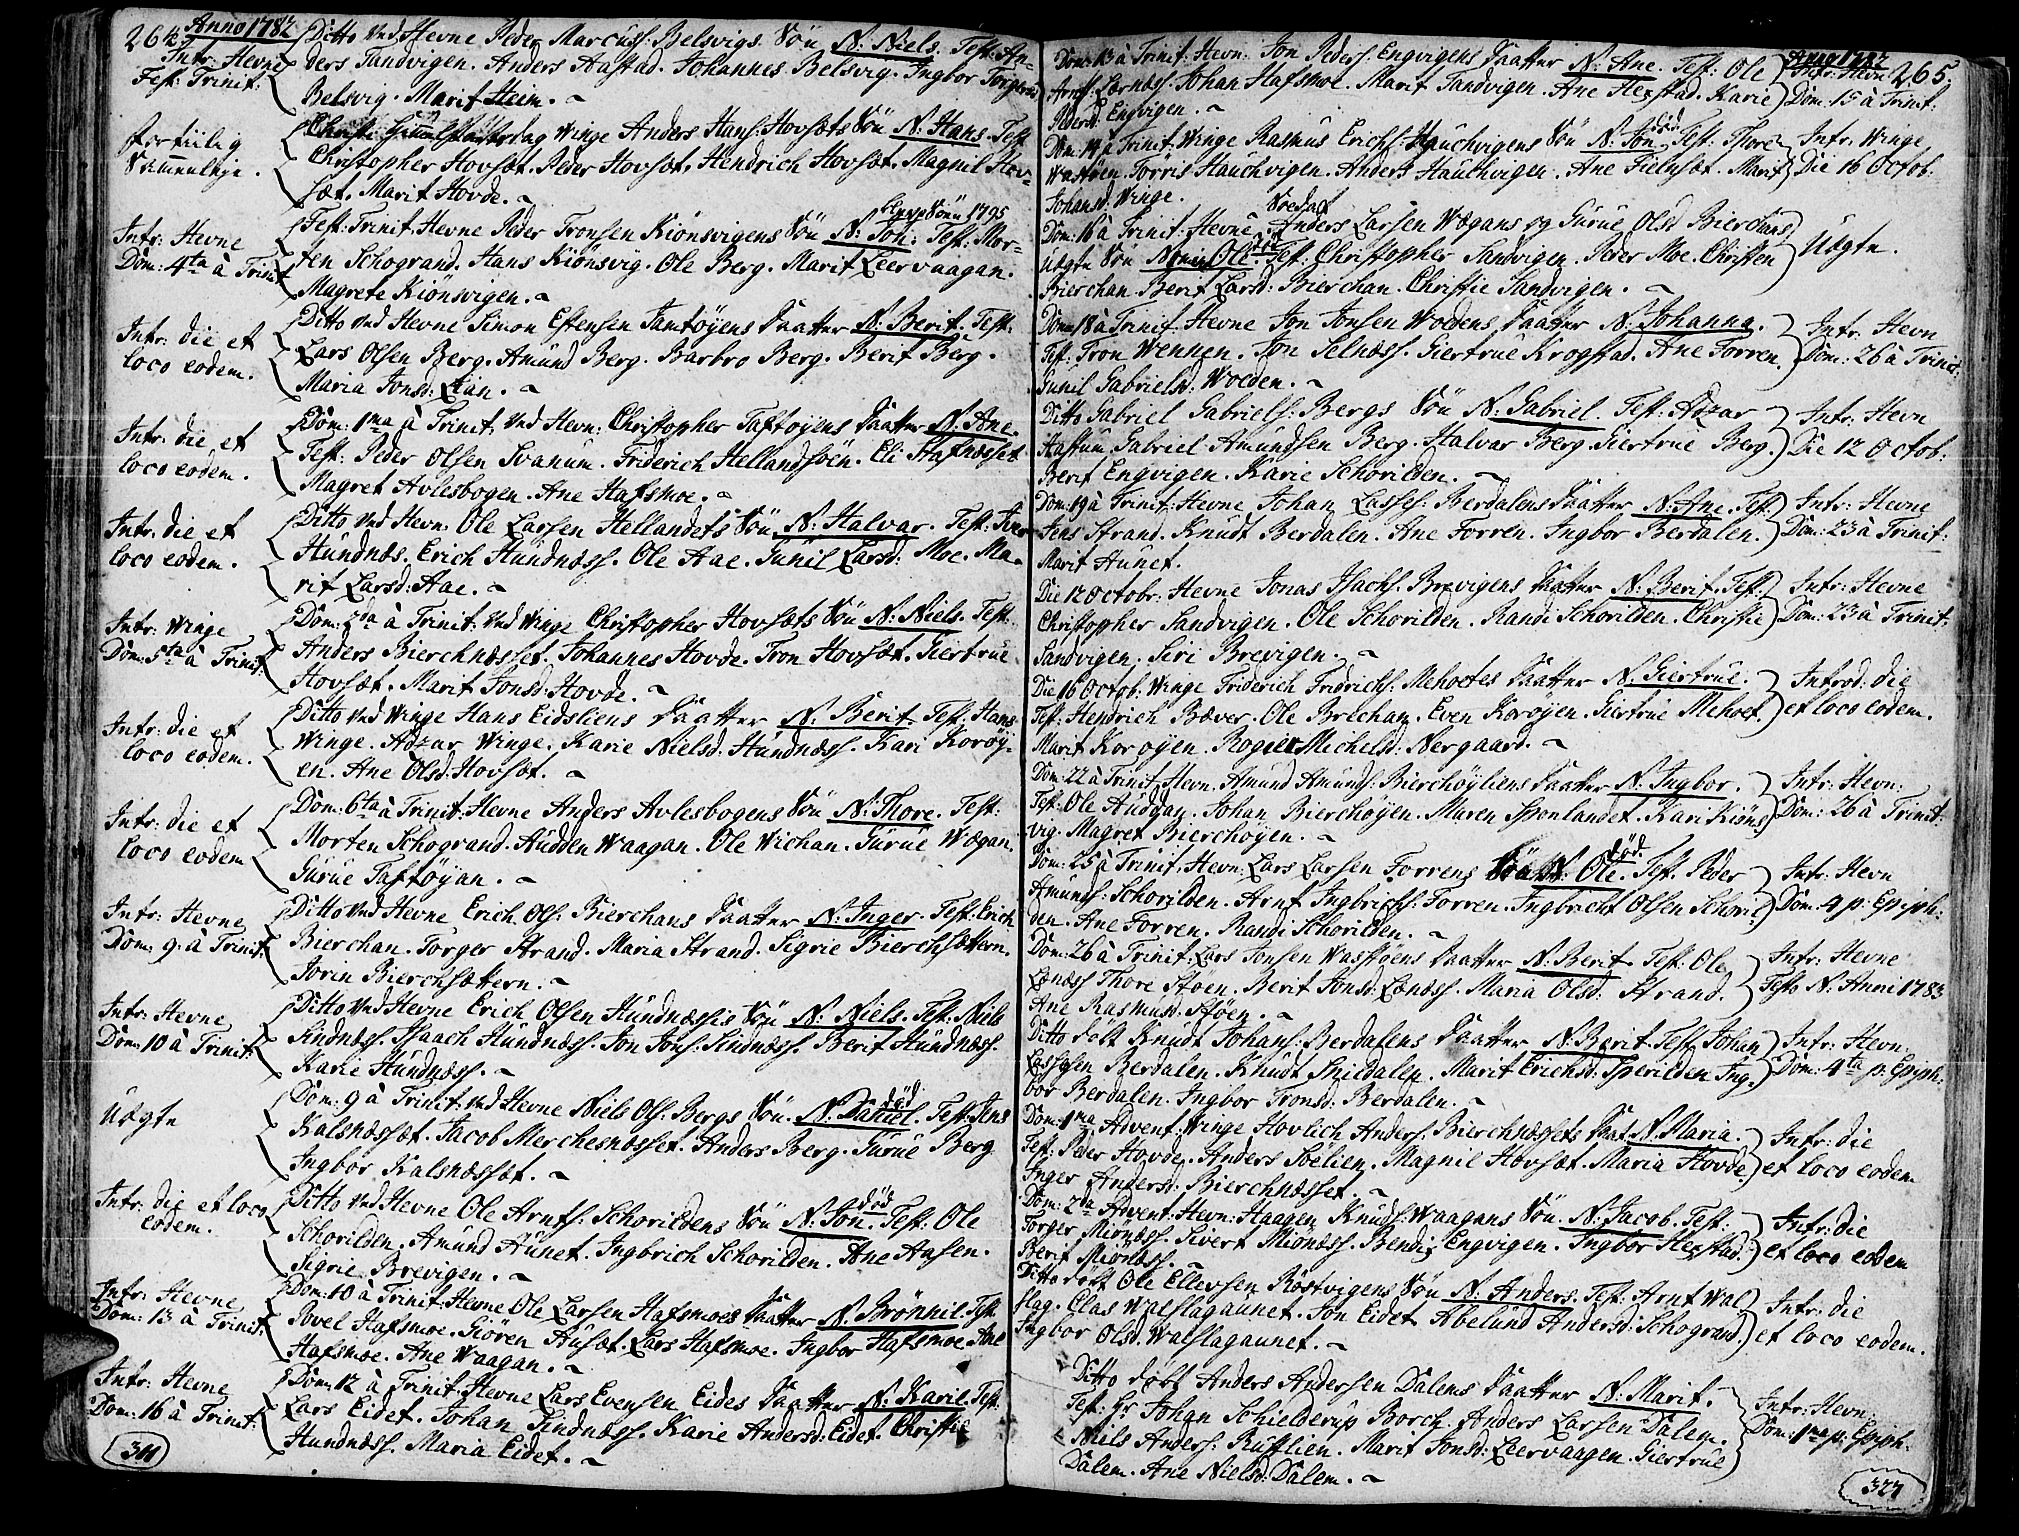 264. Anno 1782
Intr: Hevne
Fest: Trinit:
Ditto ved Hevne Peder Marcuss: Belsvigs Sön N: Niels. Test: An-
ders Sandvigen. Anders Aastad. Johannes Belsvig. Ingbor
Belsvig. Marit Heim.
Winge Anders Hans: Hovsæts Sön N: Hans. Test
Christopher Hovsæt. Peder Hovsæt. Hendrich Hovsæt. Magnil Hov-
sæt. Marit Hovde.
Intr: Hevne
Dom: 4ta à Trinit
Fest: Trinit: Hevne Peder Tronsen Kiönsvigens Sön N: Jon. Test: Mor-
ten Schogrand. Hans Kiönsvig. Ole Berg. Marit Leervaagan.
Magrete Kiönsvigen.
Intr: die et
loco eodem.
Ditto ved Hevne Simon Estensen Tamtöyens Daatter N: Berit. Test.
Lars Olsen Berg. Amund Berg. Barbro Berg. Berit Berg.
Maria Jonsd: Lian.
Intr: die et
loco eodem.
Dom: 1ma à Trinit: ved Hevn: Christopher Taftöyens Daatter N: Ane.
Test: Peder Olsen Svanum. Friderich Hellandsöen. Eli Hafnæsset
Magret Avlesbogen. Ane Hafsmoe.
Intr: die et
loco eodem.
Ditto ved Hevn: Ole Larsen Hellandets Sön N: Halvar. Test:
Hundnæs. Erich Hundnæss. Ole Aae. Gunil Larsd: Moe. Ma-
rit Larsd: Aae.
Intr: Winge
Dom: 5ta à Trinit:
Dom: 2da à Trinit: ved Winge Christopher Hovsæts Sön N: Niels. Test.
Anders Bierchnæsset. Johannes Hovde. Tron Hovsæt. Giertrue
Hovsæt. Marit Jonsd: Hovde.
Intr: die et
loco eodem.
Ditto ved Winge Hans Eidsliens Daatter N: Berit. Test: Hans
Winge. Adzar Winge. Karie Nielsd: Hundnæss. Kari Koröy-
en. Ane Olsd: Hovsæt.
Intr: die et
loco eodem
Dom: 6ta à Trinit: Hevne Anders Avlesbogens Sön N: Thore. Test:
Morten Schogrand. Audden Waagan. Ole Wichan. Gurue Wægan.
Gurue Taftöyan.
Intr: Hevne
Dom: 9. à Trinit:
Ditto ved Hevne Erich Ols: Bierchans Daatter N: Inger. Test: Erich
Bierchan. Torger Strand. Maria Strand. Sigrie Bierchsættern.
Jorin Bierchsættern.
Intr: Hevne
Dom: 10 à Trinit:
Ditto ved Hevne Erich Olsen Hundnæssis Sön N: Niels. Test: Niels
Sindnæss. Isaach Hundnæss. Jon Jons: Sindnæss. Berit Hundnæss.
Karie Hundnæss.
Uægte
Dom: 9 à Trinit: ved Hevne Niels Ols: Bergs Sön. N: Daniel. död. Test: Jens
Kalsnæssæt. Jacob Merchesnæsset. Anders Berg. Gurue Berg
Ingbor Kalsnæssæt.
Intr: die et loco
eodem.
Ditto ved Hevne Ole Arnts: Schorildens Sön N: Jon. död Test: Ole
Schorilden. Amund Aunet. Ingbrich Schorilden. Ane Aasen.
Sigrie Brevigen.
Intr: Hevne
Dom: 13 à Trinit:
Dom: 10 à Trinit: Hevne Ole Larsen Hafsmoes Daatter N: Brönnil. Test
Povel Hafsmoe. Giören Ausæt. Lars Hafsmoe. Ingbor Hafsmoe Ane
Hafsmoe. Ane Waagan.
Intr: Hevne
Dom: 16 à Trinit:
Dom: 12 à Trinit: Hevne Lars Evensen Eides Daatter N: Karie. Test.
Lars Eidet. Johan Sindnæss. Karie Andersd: Eidet. Christie
Hundnæss. Maria Eidet.
311
Anno 1782 265.
Dom: 13 à Trinit: Hevn: Jon Peders: Engvigens Daatter N: Ane. Test: Ole
Johan Hafsmoe. Marit Sandvigen. Ane Hexstad. Karie
Pedersd: Engvigen.
Intr: Hevn
Dom: 15 à Trinit:
Dom: 14 à Trinit: Winge Rasmus Erichs: Hauchvigens Sön N: Jon död Test: Thore
Törris Hauchvigen. Anders Hauchvigen. Ane Fielnsæt. Marit
Johansd: Winge.
Intr: Winge
Die 16 Octob.
Dom: 16 à Trinit: Hevne Anders Larsen Wægans og Gurue Olsd Bierchans
uægte Sön N: Ole. död Test: Christopher Sandvigen. Peder Moe. Christen
Bierchan. Berit Larsd: Bierchan. Christie Sandvigen.
Uægte.
Dom: 18 à Trinit: Hevne Jon Jonsen Woedens Daatter N: Johanna.
Test: Tron Wennen. Jon Selnæss. Giertrue Krogstad. Ane Forren.
Gunil Gabrielsd: Woeden.
Intr: Hevn
Dom: 26 à Trinit:
Ditto Gabriel Gabriels: Bergs Sön N: Gabriel. Test: Adzar
Hastum. Gabriel Amundsen Berg. Halvar Berg. Giertrue Berg.
Berit Engvigen. Karie Schorilden.
Intr: Hevn
Die 12 Octob:
Dom: 19 à Trinit: Hevne Johan Lasses: Berdalens Daatter N: Ane. Test.
Jens Strand. Knudt Berdalen. Ane Forren. Ingbor Berdalen.
Marit Aunet.
Intr: Hevne
Dom: 23 à Trinit:
Die 12 Octobr: Hevne Jonas Isachs: Brevigens Daatter N: Berit. Test.
Christopher Sandvigen. Ole Schorilden. Randi Schorilden. Christie
Sandvigen. Siri Brevigen.
Intr: Hevne
Dom: 23 à Trinit:
Die 16 Octob: Winge Friderich Fridrichs: Mehoetes Daatter N: Giertrue.
Test: Hendrich Bæver. Ole Brechan. Even Koröyen. Giertrue Mehoet.
Marit Koröyen. Michelsd: Nergaard.
Introd: die
et loco eodem.
Dom: 22 à Trinit: Hevn. Amund Amunds: Bierchöyliens Daatter N: Ingbor.
Test: Ole Johan Bierchöyen. Maren Sponlandet. Kari Kiöns
vig. Magret Bierchöyen.
Intr: Hevn:
Dom: 26 à Trinit:
Dom: 25 à Trinit: Hevn: Lars Larsen Forrens Sön N: Ole. död Test. Peder
Amunds: Schorilden. Arnt Ingbrichs: Forren. Ingbricht Olsen Schoril-
den. Ane Forren. Randi Schorilden.
Intr: Hevn
Dom: 4 p: Epiph:
Dom: 26 à Trinit: Lars Jonsen Wasstöens Daatter N: Berit. Test: Ole
Lenæss Thore Stöen. Berit Jonsd: Lenæss. Maria Olsd: Strand.
Ane Rasmusd: Stöen.
Intr: Hevne
Festo N: Anni 1783
Ditto döbt Knudt Johans: Berdalens Daatter N: Berit. Test. Johan
Lassesen Berdalen. Knudt Sniedalen. Marit Erichsd: Ing-
bor Berdalen. Ingbor Tronsd: Berdalen.
Intr: Hevn.
Dom: 4ta p: Epiph:
Dom: 1ma Advent. Winge Hovlich Anders: Bierchnæssets Daat. N. Maria.
Test: Peder Hovde. Anders Soelien. Magnil Hovsæt. Maria Hovde.
Inger Andersd: Bierchnæsset.
Intr: die
et loco eodem
Dom: 2da Advent: Hevn: Haagen Knuds: Waagans Sön. N: Jacob. Test:
Torger Miönæss. Sivert Miönæss. Bendix Engvigen. Ingbor Hexstad.
Berit Miönæss.
Intr: die
et loco eodem
Ditto döbt Ole Ellevsen Röstvigens Sön N: Anders. Test: Arnt Wal-
slag. Clas Walslagaunet. Jon Eidet. Abelund Andersd: Schogrand.
Ingbor Olsd. Walslagaunet.
Intr: die
et loco eodem.
Ditto döbt Anders Andersen Dalems Daatter N: Marit.
Test: Hr Johan Schielderup Borch. Anders Larsen Dalem.
Niels Anders: Rusflien. Marit Jonsd: Leervaagen. Giertrue
Dalem. Ane Nielsd: Dalem.
Intr: Hevn.
Dom: 1ma p: Epiph.
327